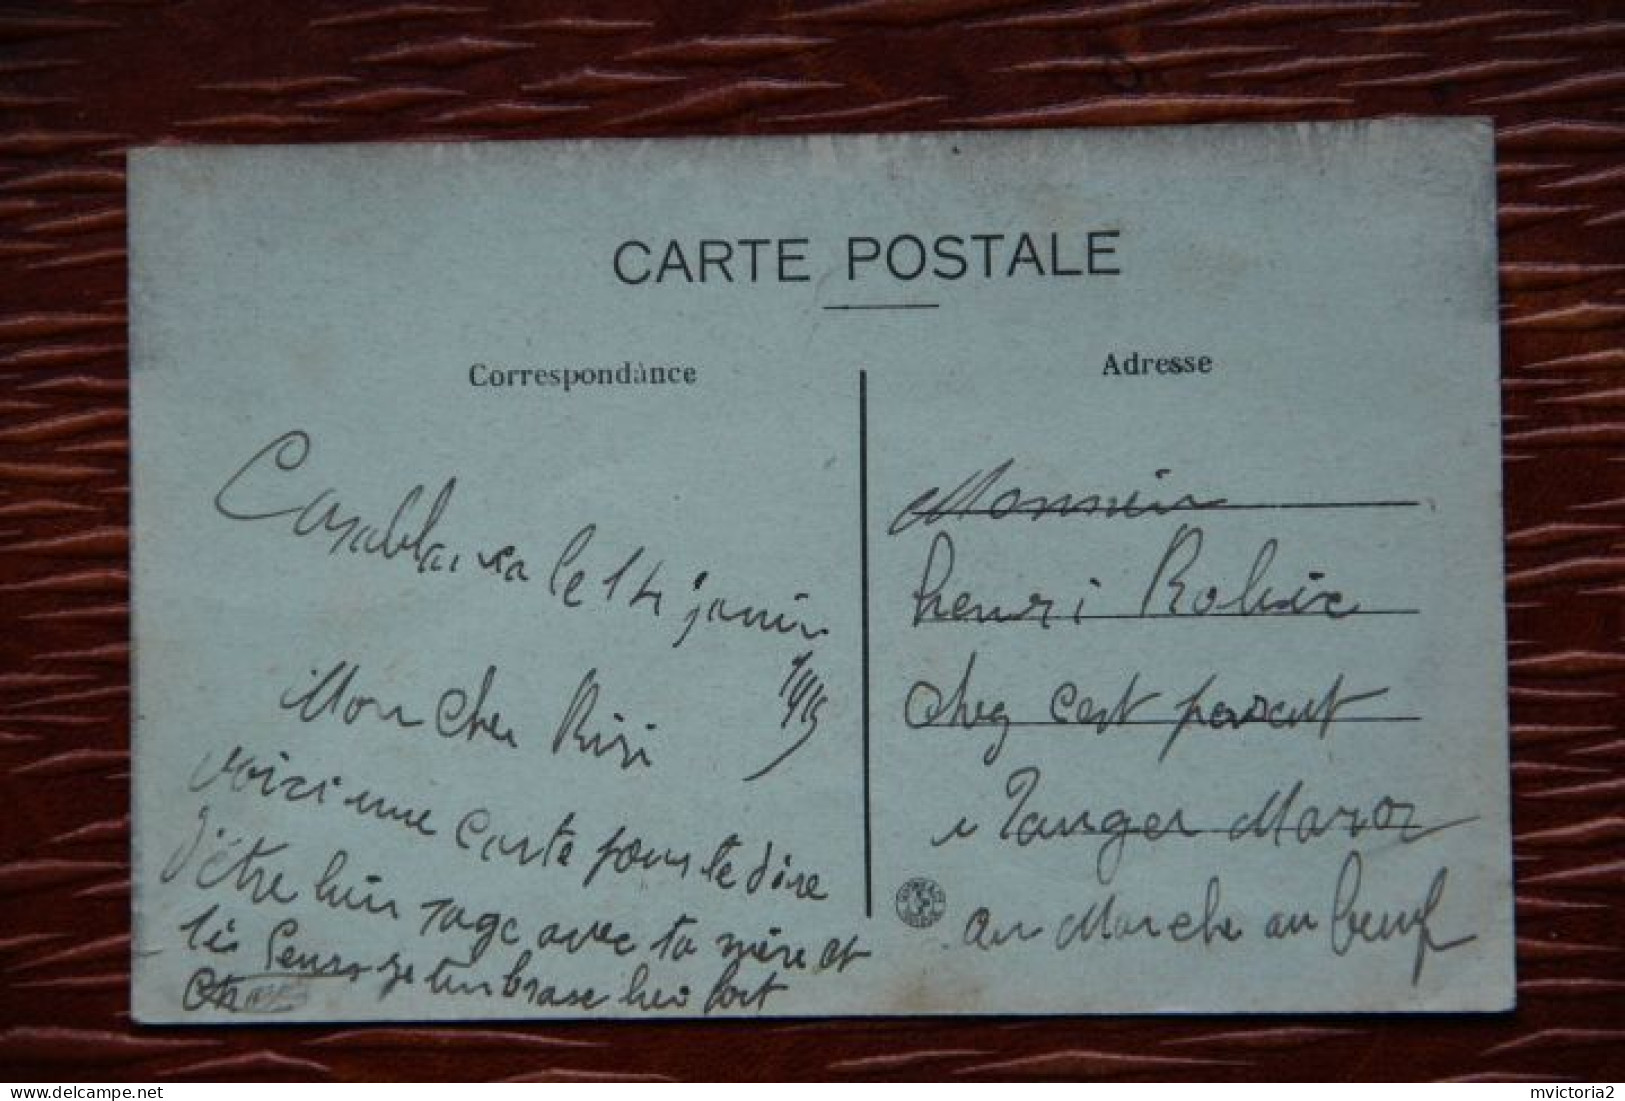 CARTE POSTALE
Correspondance
Adresse
Casablanca le 14 janvier
1915
Mon cher Riri
voici une carte pour te dire
d'être bien sage avec ta mère et
tes je t'embrasse bien fort
Monsieur
henri
chez c'est parent
a Tanger Maroc
au Marche au beuf
mvictoria2